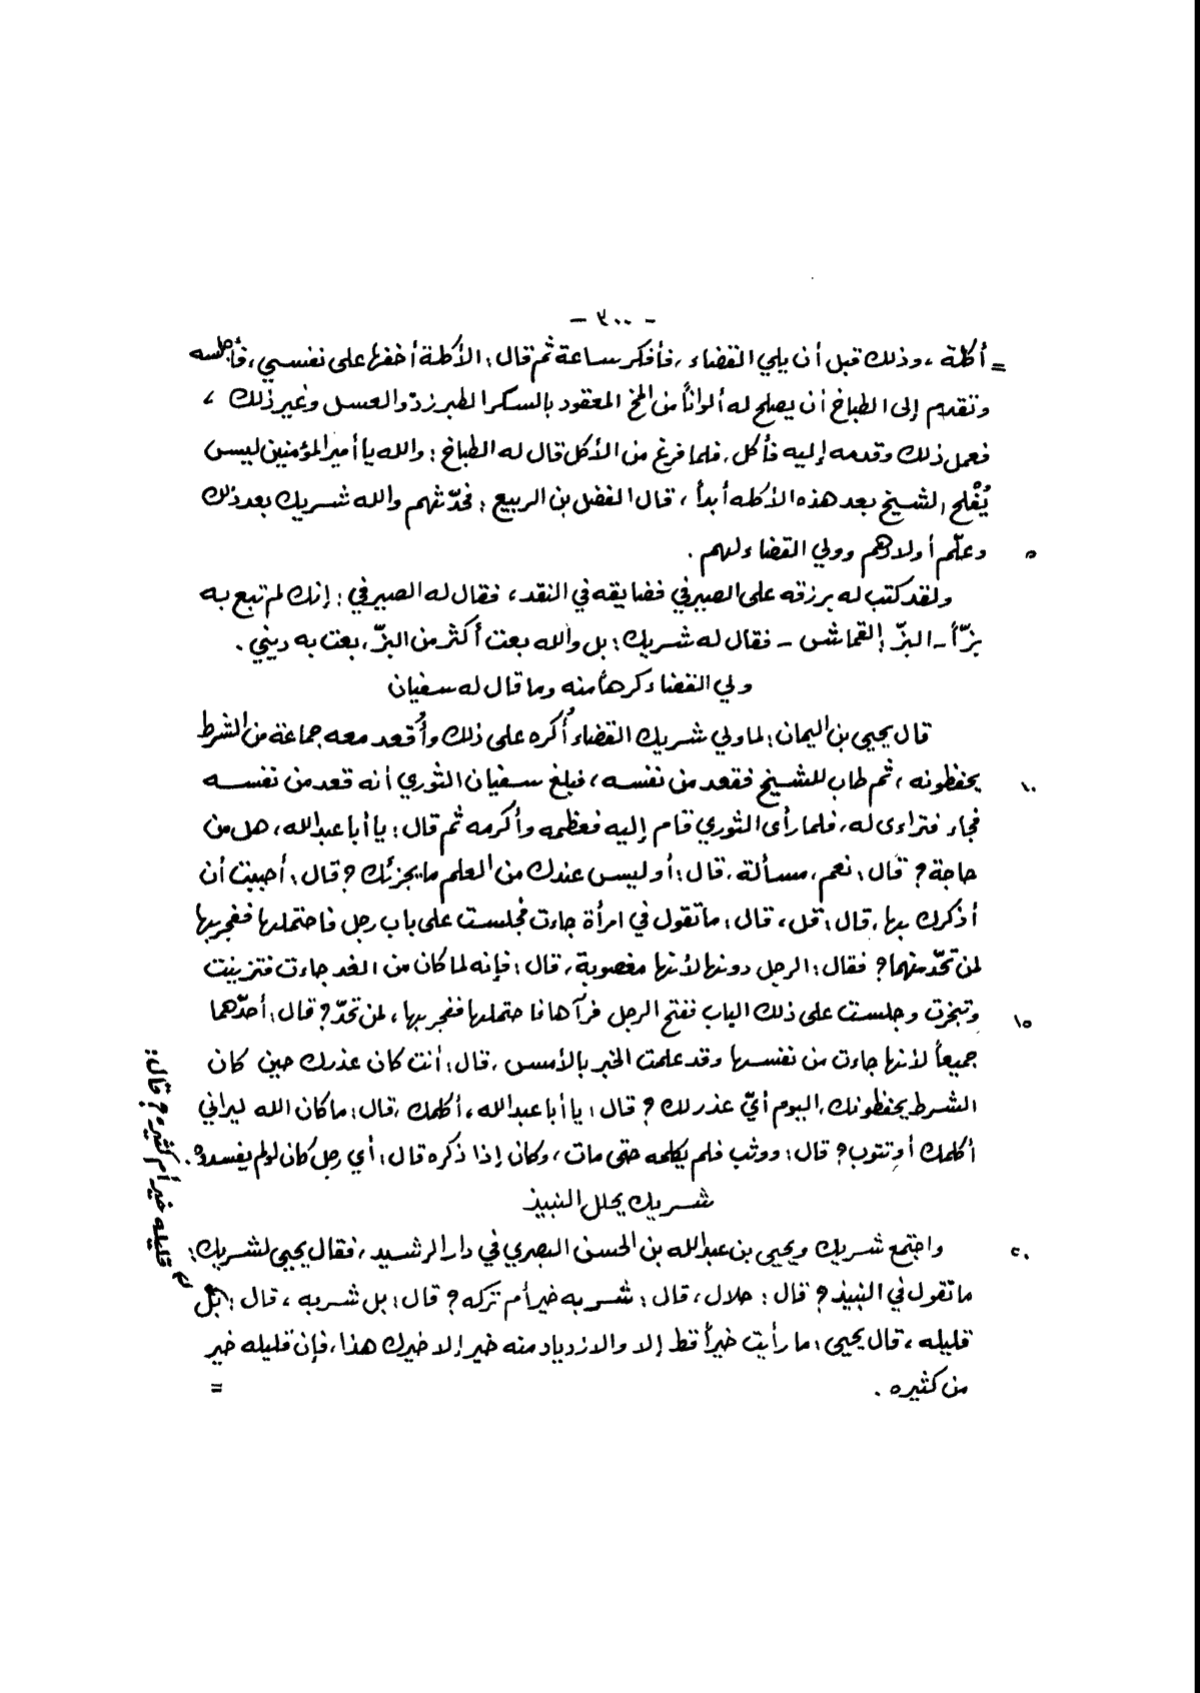 - ٣٠٠ -
= أكلة ، وذلك قبل أن يلي القضاء ، فأفكر ساعة ثم قال : الأكلة أخفها على نفسي ، فأجلسه
وتقدم إلى الطباخ أن يصلح له ألواناً من المخ المعقود بالسكر الطبرزذ والعسل وغير ذلك ،
فعمل ذلك وقدمه إليه فأكل ، فلما فرغ من الأكل قال له الطباخ : والله يا أمير المؤمنين ليس
يُفْلح الشيخ بعد هذه الأكله أبداً ، قال الفضل بن الربيع : فحدّثهم والله شريك بعد ذلك
٥ وعلّم أولادهم وولي القضاء لهم .
ولقد كتب له برزقه على الصيرفي فضايقه في النقد ، فقال له الصيرفي : إنك لم تبع به
بزّاً - البزّ : القماش - فقال له شريك : بل والله بعت أكثر من البزّ ، بعت به ديني .
ولي القضاء كرهاً منه وما قال له سفيان
قال يحيى بن اليمان : لما ولي شريك القضاء أُكره على ذلك وأُقعد معه جماعة من الشرط
١٠ يحفظونه ، ثم طاب للشيخ فقعد من نفسه ، فبلغ سفيان الثوري أنه قعد من نفسه
فجاء فتراءى له ، فلما رأى الثوري قام إليه فعظمه وأكرمه ثم قال : يا أبا عبدالله ، هل من
حاجة ؟ قال : نعم ، مسألة ، قال : أوليس عندك من العلم ما يجزئك ؟ قال : أحببت أن
أذكرك بها ، قال : قل ، قال : ما تقول في امرأة جاءت فجلست على باب رجل فاحتملها ففجر بها
لمن تحدّ منهما ؟ فقال : الرجل دونها لأنها مغصوبة ، قال : فإنه لما كان من الغد جاءت فتزينت
١٥ وتبخرت وجلست على ذلك الباب ففتح الرجل فرآها فاحتملها ففجر بها ، لمن تحدّ ؟ قال : أحدّهما
جميعاً لأنها جاءت من نفسها وقد علمت الخبر بالأمس ، قال : أنت كان عذرك حين كان
الشرط يحفظونك ، اليوم أيّ عذر لك ؟ قال : يا أبا عبدالله ، أكلمك ، قال : ما كان الله ليراني
أكلمك أو تتوب ؟ قال : ووثب فلم يكلمه حتى مات ، وكان إذا ذكره قال : أي رجل كان لو لم يفسدوه .
شريك يحلل النبيذ
٢٠ واجتمع شريك ويحيى بن عبدالله بن الحسن البصري في دار الرشيد ، فقال يحيى لشريك :
ما تقول في النبيذ ؟ قال : حلال ، قال : شربه خير أم تركه ؟ قال : بل شربه ، قال : بل
قليله خير أم كثيره ؟ قال :
قليله ، قال يحيى : ما رأيت خيراً قط إلا والازدياد منه خير إلا خيرك هذا ، فإن قليله خير
من كثيره . =